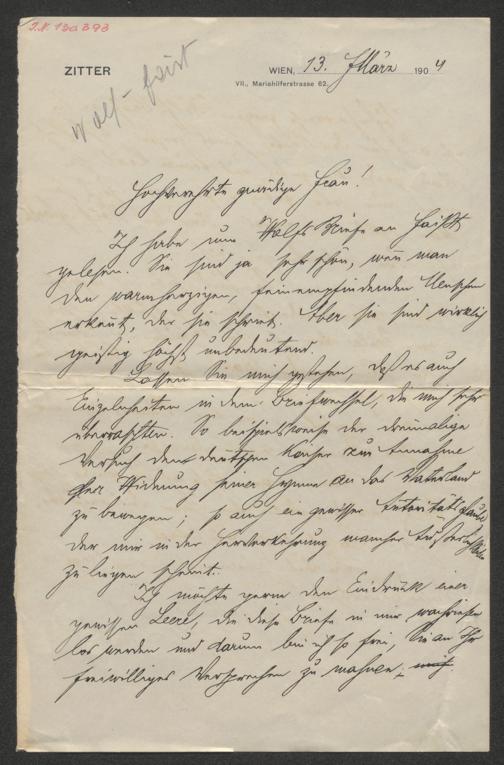 I.N. 130.393
Wolf-Faist
ZITTER
WIEN, 13. März 1904
VII., Mariahilferstrasse 62.
Hochverehrte gnädige Frau!
Ich habe nun Wolfs Briefe an Faißt
gelesen. Sie sind ja sehr schön, wenn man
den warmherzigen, feinempfindenden Menschen
erkennt, der sie schrieb. Aber sie sind wirklich
geistig höchst unbedeutend.
Lassen Sie mich gestehen, daß es auch
Einzelnheiten in dem Briefwechsel, die mich sehr
überraschten. So beispielsweise der dreimalige
Versuch den deutschen Kaiser zur Annahme
der Widmung seiner Hymne an das Vaterland
zu bewegen; so auch ein gewisser Autoritätsglaube
der mir in der Hervorkehrung mancher
zu liegen scheint.
Ich möchte gerne den Eindruck einer
gewissen Leere, die diese Briefe in mir wachriefen
los werden und darum bin ich so frei, Sie an Ihr
freiwilliges Versprechen zu mahnen, mich